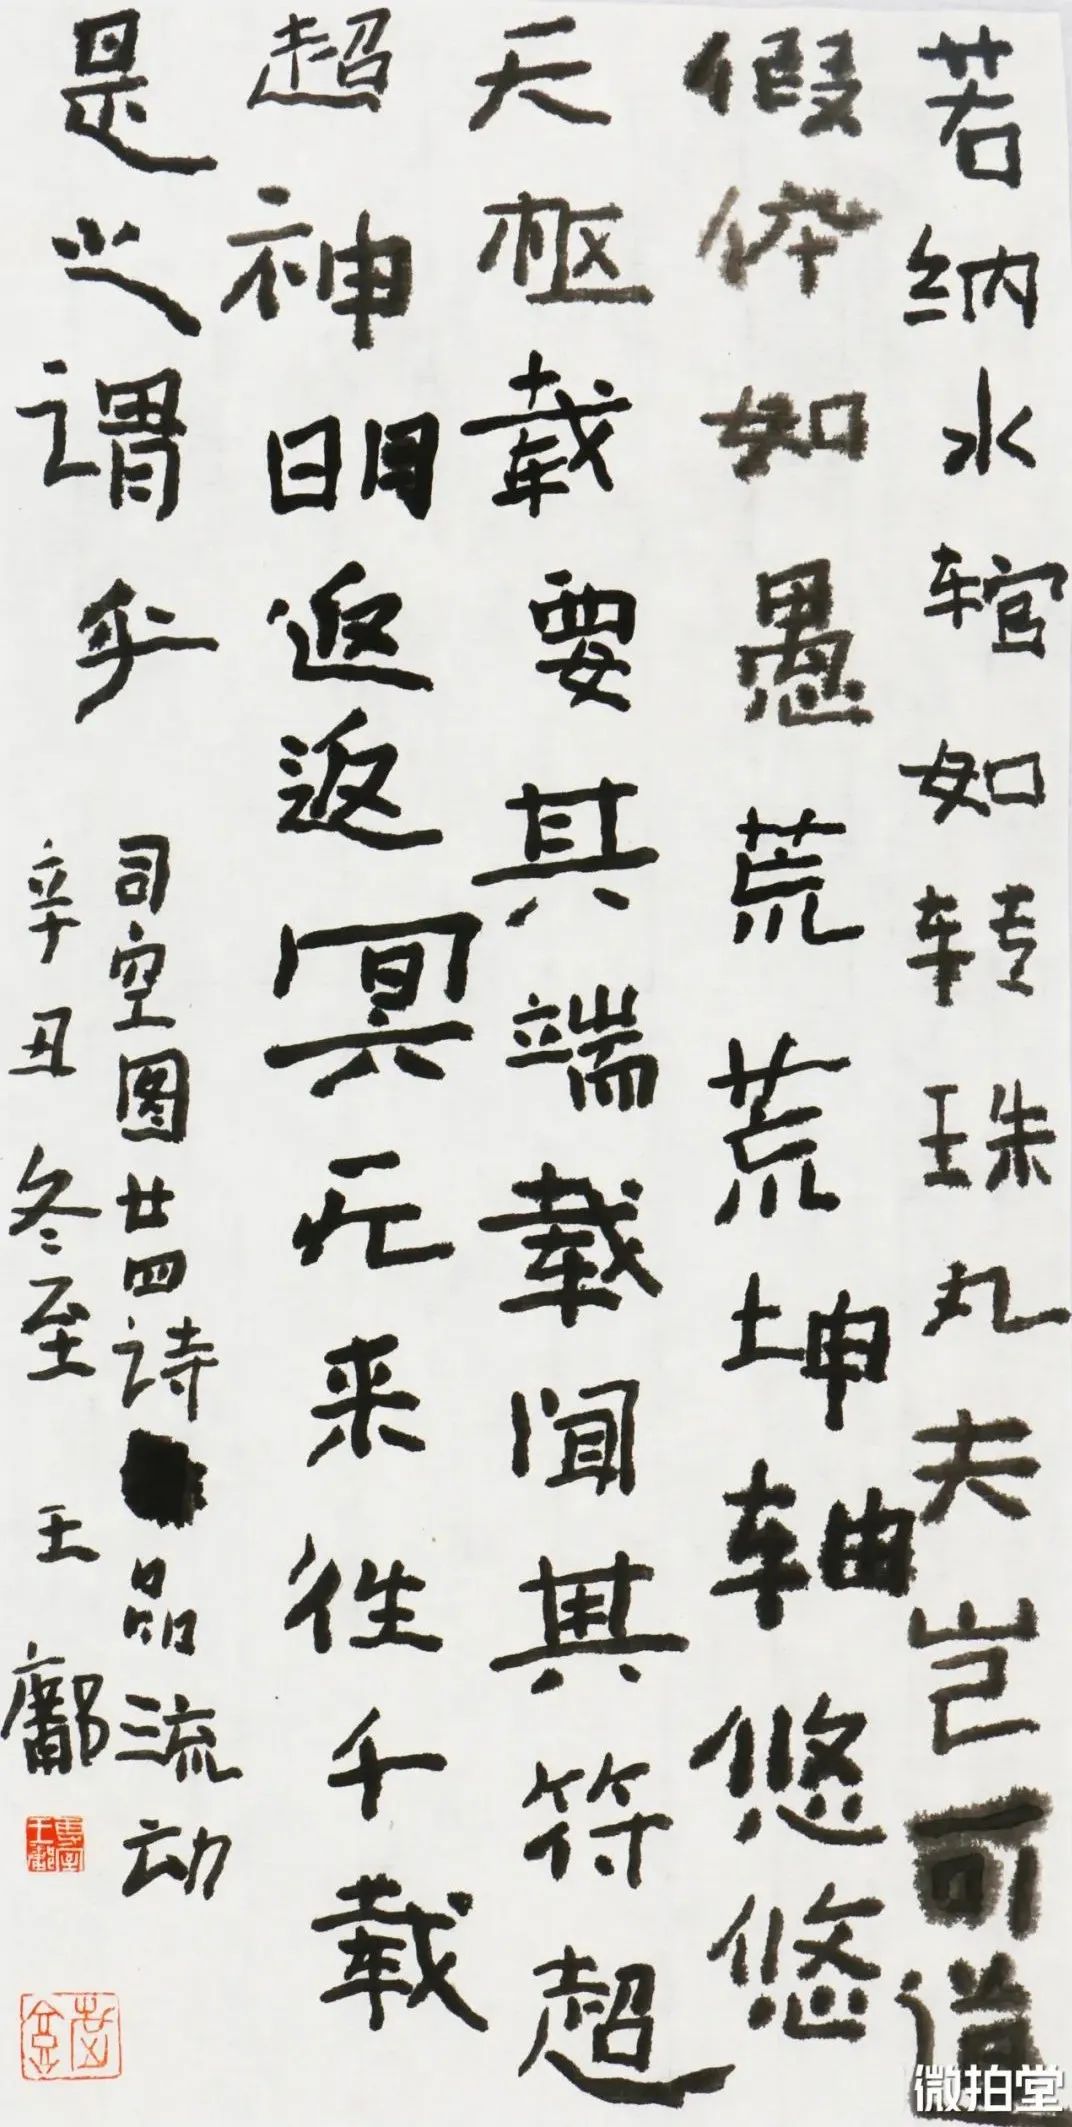 若纳水輨如转珠丸夫岂可道
假体如愚荒荒坤轴悠悠
天枢载要其端载闻其符超
超神明返返冥无来往千载
是之谓乎
司空图廿四诗品流动
辛丑冬至 王鄘
微拍堂